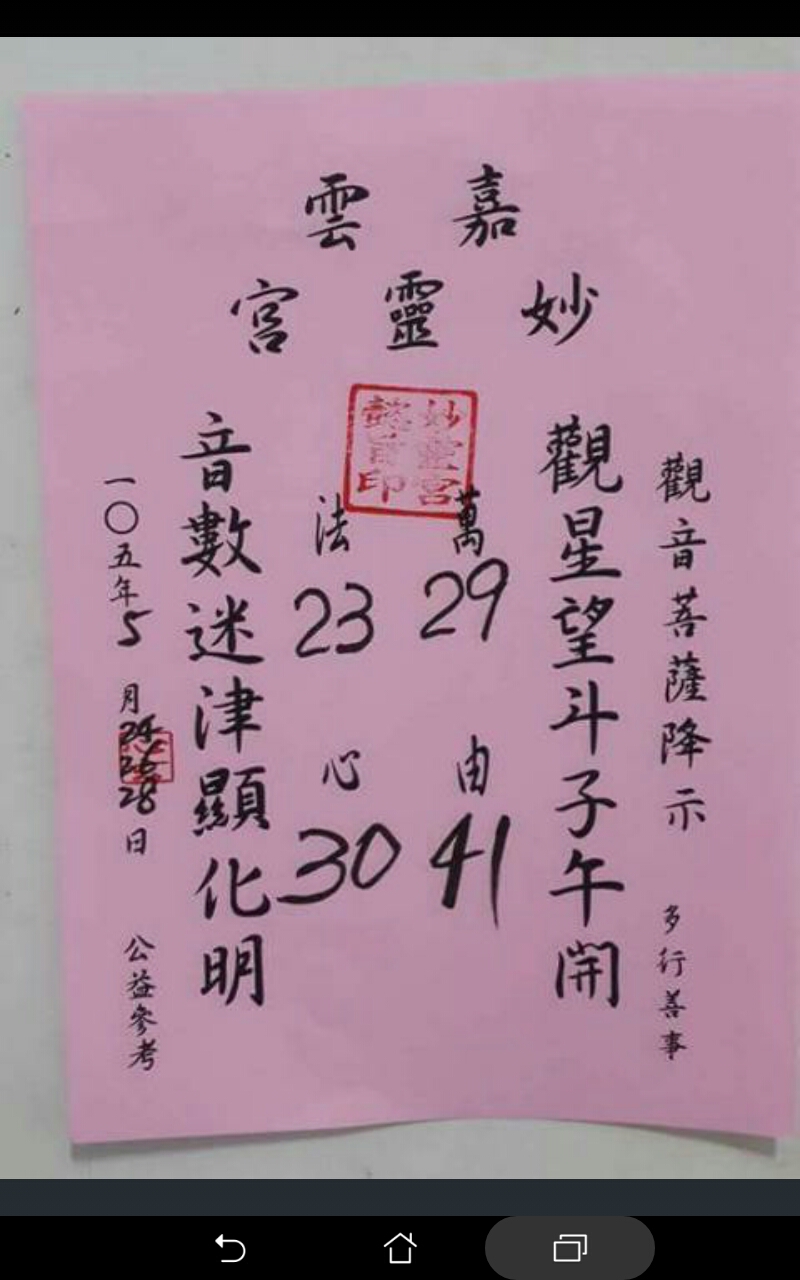 嘉雲
妙靈宮
觀音菩薩降示 多行善事
觀星望斗子午開
萬 29 由 41
法 23 心 30
音數迷津顯化明
一〇五年5月24 26 28日 公益參考
妙靈宮
印